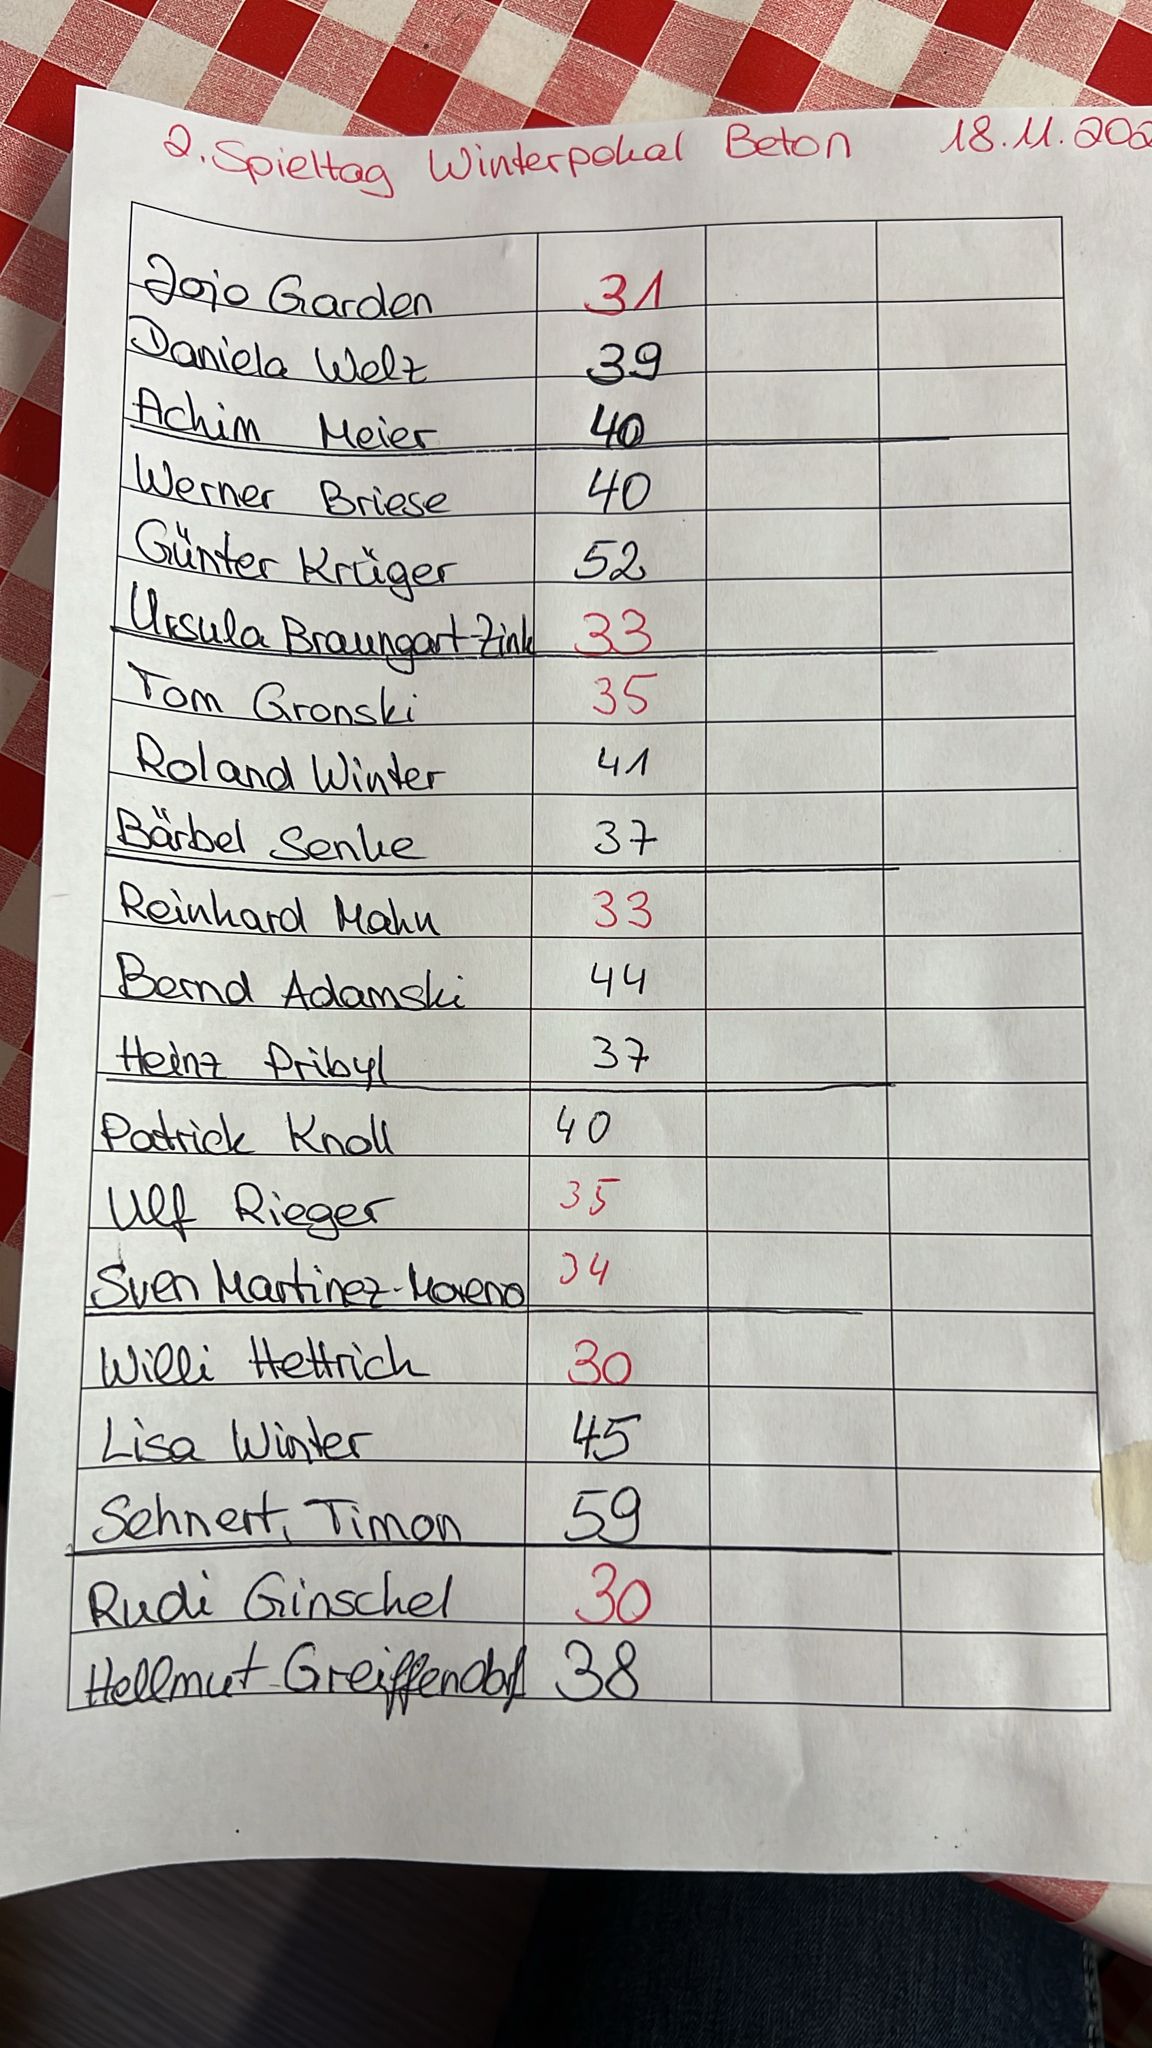 2. Spieltag Winterpokal Beton 18.11.202
Jojo Garden 31
Daniela Welz 39
Achim Meier 40
Werner Briese 40
Günter Krüger 52
Ursula Braungart-Zink 33
Tom Gronski 35
Roland Winter 41
Bärbel Senke 37
Reinhard Mahn 33
Bernd Adamski 44
Heinz Pribyl 37
Patrick Knoll 40
Ulf Rieger 35
Sven Martinez-Moreno 34
Willi Hettrich 30
Lisa Winter 45
Sehnert, Timon 59
Rudi Ginschel 30
Hellmut Greiffendorf 38